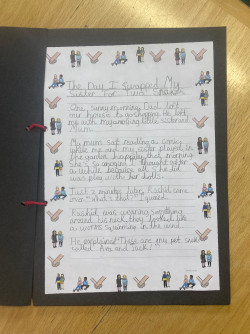 The Day I Swapped My
Sister For Two Snakes
One sunny morning Dad left
our house to go shopping. He left
me with my annoying little sister and
Mum.
My mum sat reading a comic
while me and my sister played in
the garden happily that morning
She's so annoying I thought after
a while because all she did
was play with her dolls.
Just a minute later, Rashid came
over "What's that?" I
Rashid was wearing something
around his neck they looked like
a worms squirming in the wind.
He explained "These are my pet snakes
called Ava and Jack!"